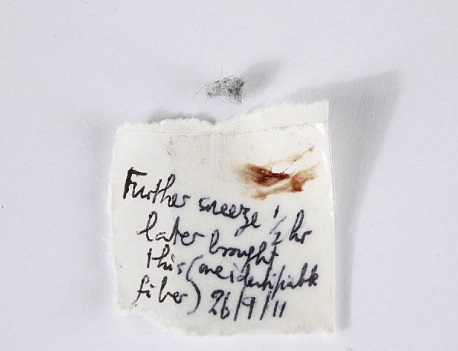 Further sneeze 1/2 hr
later brought
this (one identifiable
fiber) 26/9/11